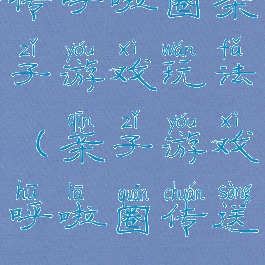 传呼啦圈亲
zǐ yóu xì wán fǎ
子游戏玩法
qīn zǐ yóu xì
(亲子游戏
hū lā quān chuán sòng
呼啦圈传送